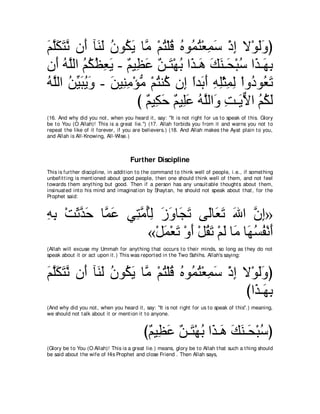 وَلَوْلا إِذْ سَمِعْتُمُوهُ قُلْتُمْ مَّا يَكُونُ لَنَآ أَن نَّتَكَلَّمَ
بِهَـذَا سُبْحَـنَكَ هَـذَا بُهْتَـنٌ عَظِيمٌ - يَعِظُكُمُ اللَّهُ أَن
تَعُودُواْ لِمِثْلِهِ أَبَداً إِن كُنتُمْ مُّؤْمِنِينَ - وَيُبَيِّنُ اللَّهُ
لَكُمُ الاٌّيَـتِ وَاللَّهُ عَلِيمٌ حَكِيمٌ )
(16. And why did you not, when you heard it, say: "It is not right for us to speak of this. Glory
be to You (O Allah)! This is a great lie.'') (17. Allah forbids you from it and warns you not to
repeat the like of it forever, if you are believers.) (18. And Allah makes the Ayat plain to you,
and Allah is All-Knowing, All-Wise.)
Further Discipline
This is further discipline, in addition to the command to think well of people, i.e., if something
unbefitting is mentioned about good people, then one should think well of them, and not feel
towards them anything but good. Then if a person has any unsuitable thoughts about them,
insinuated into his mind and imagination by Shaytan, he should not speak about that, for the
Prophet said:
«إِنَّ اللهَ تَعَالَى تَجَاوَزَ لِأُمَّتِي عَمَّا حَدَّثَتْ بِهِ
أَنْفُسَهَا مَا لَمْ تَقُلْ أَوْ تَعْمَلْ»
(Allah will excuse my Ummah for anything that occurs to their minds, so long as they do not
speak about it or act upon it.) This was reported in the Two Sahihs. Allah's saying:
(وَلَوْلا إِذْ سَمِعْتُمُوهُ قُلْتُمْ مَّا يَكُونُ لَنَآ أَن نَّتَكَلَّمَ
بِهَـذَا)
(And why did you not, when you heard it, say: "It is not right for us to speak of this".) meaning,
we should not talk about it or mention it to anyone.
(سُبْحَـنَكَ هَـذَا بُهْتَـنٌ عَظِيمٌ)
(Glory be to You (O Allah)! This is a great lie.) means, glory be to Allah that such a thing should
be said about the wife of His Prophet and close Friend . Then Allah says,